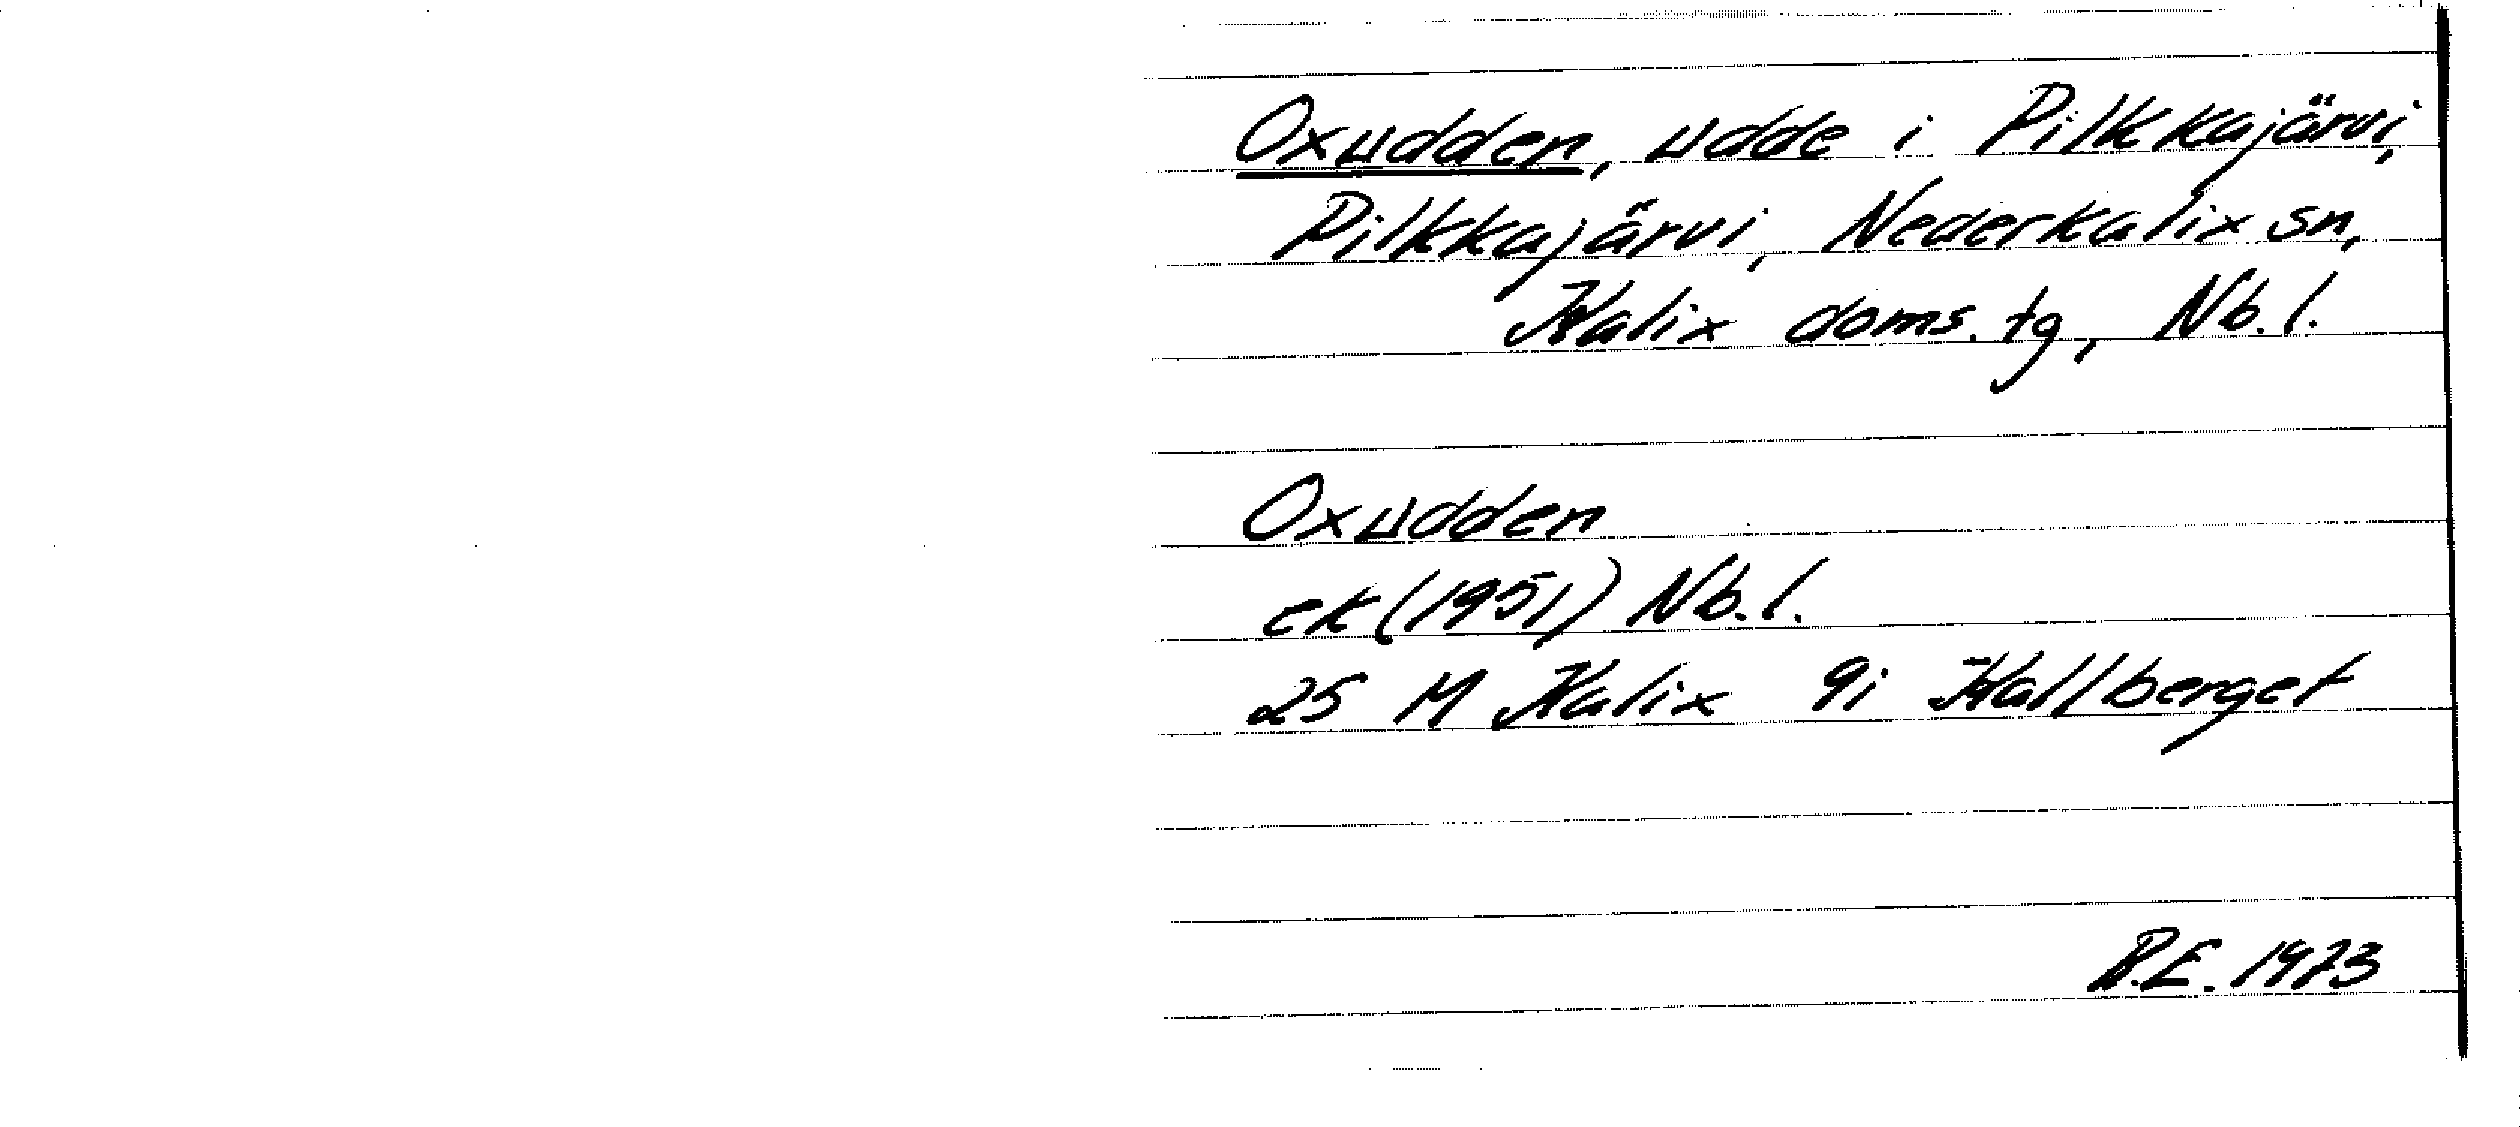 Oxudden, udde i Pilkkajärvi,
Pilkkajärvi, Nederkalix sn,
Kalix doms. tg, Nb. l.
Oxudden
ek (1951) Nb. l.
25 M Kalix 9i Kallberget
B.E. 1973